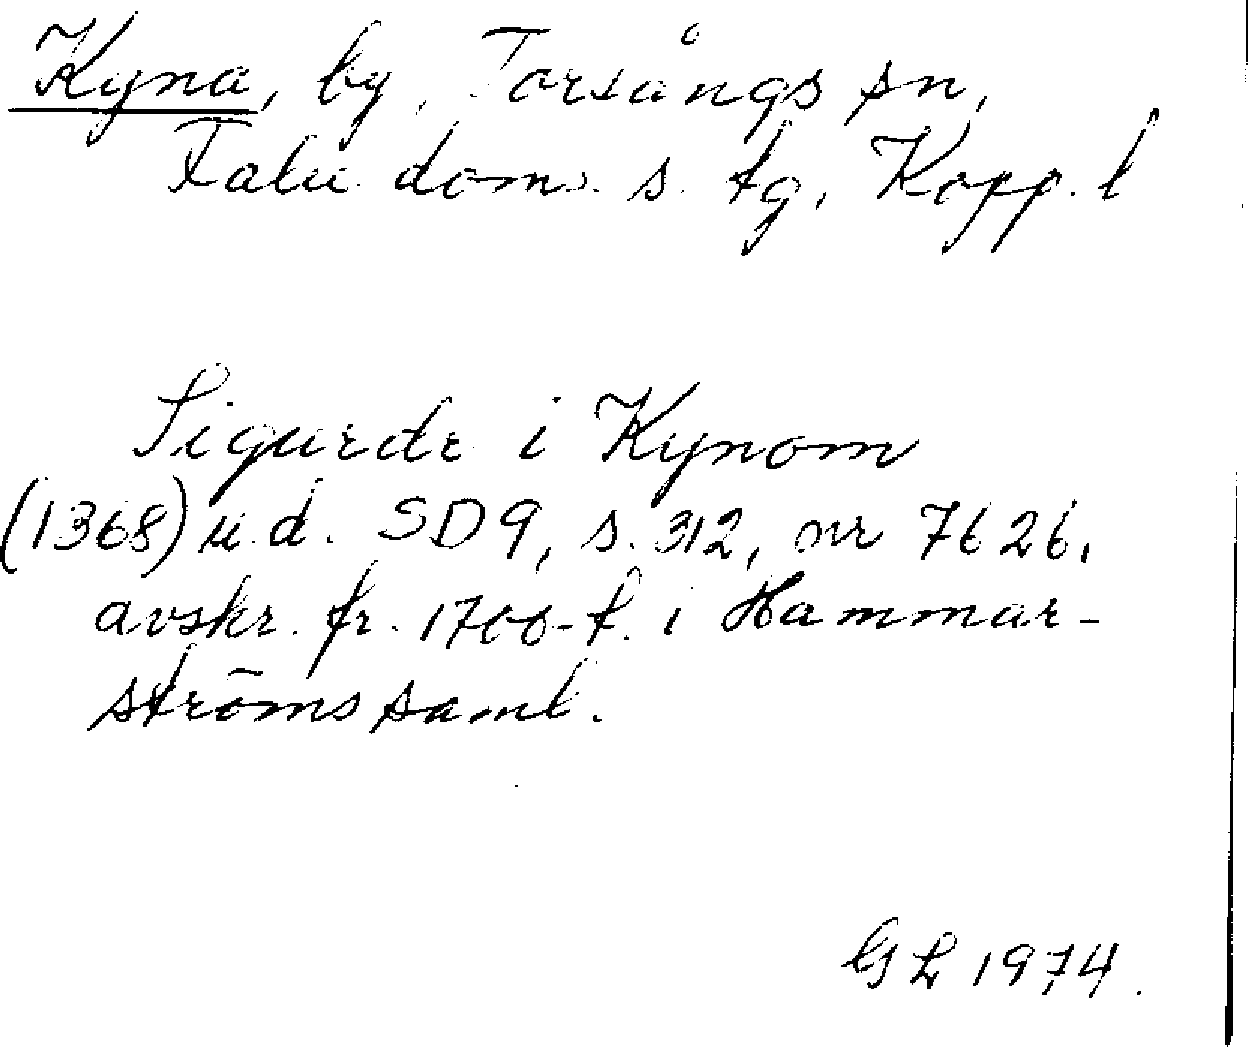 Kyna, by, Torsångs sn,
Falu doms. s. tg, Kopp. l
Sigurdr i Kynom
(1368) u.d. SD 9, s. 312, nr 7626,
avskr. fr. 1700-t. i Hammar-
ströms saml.
GL 1974.